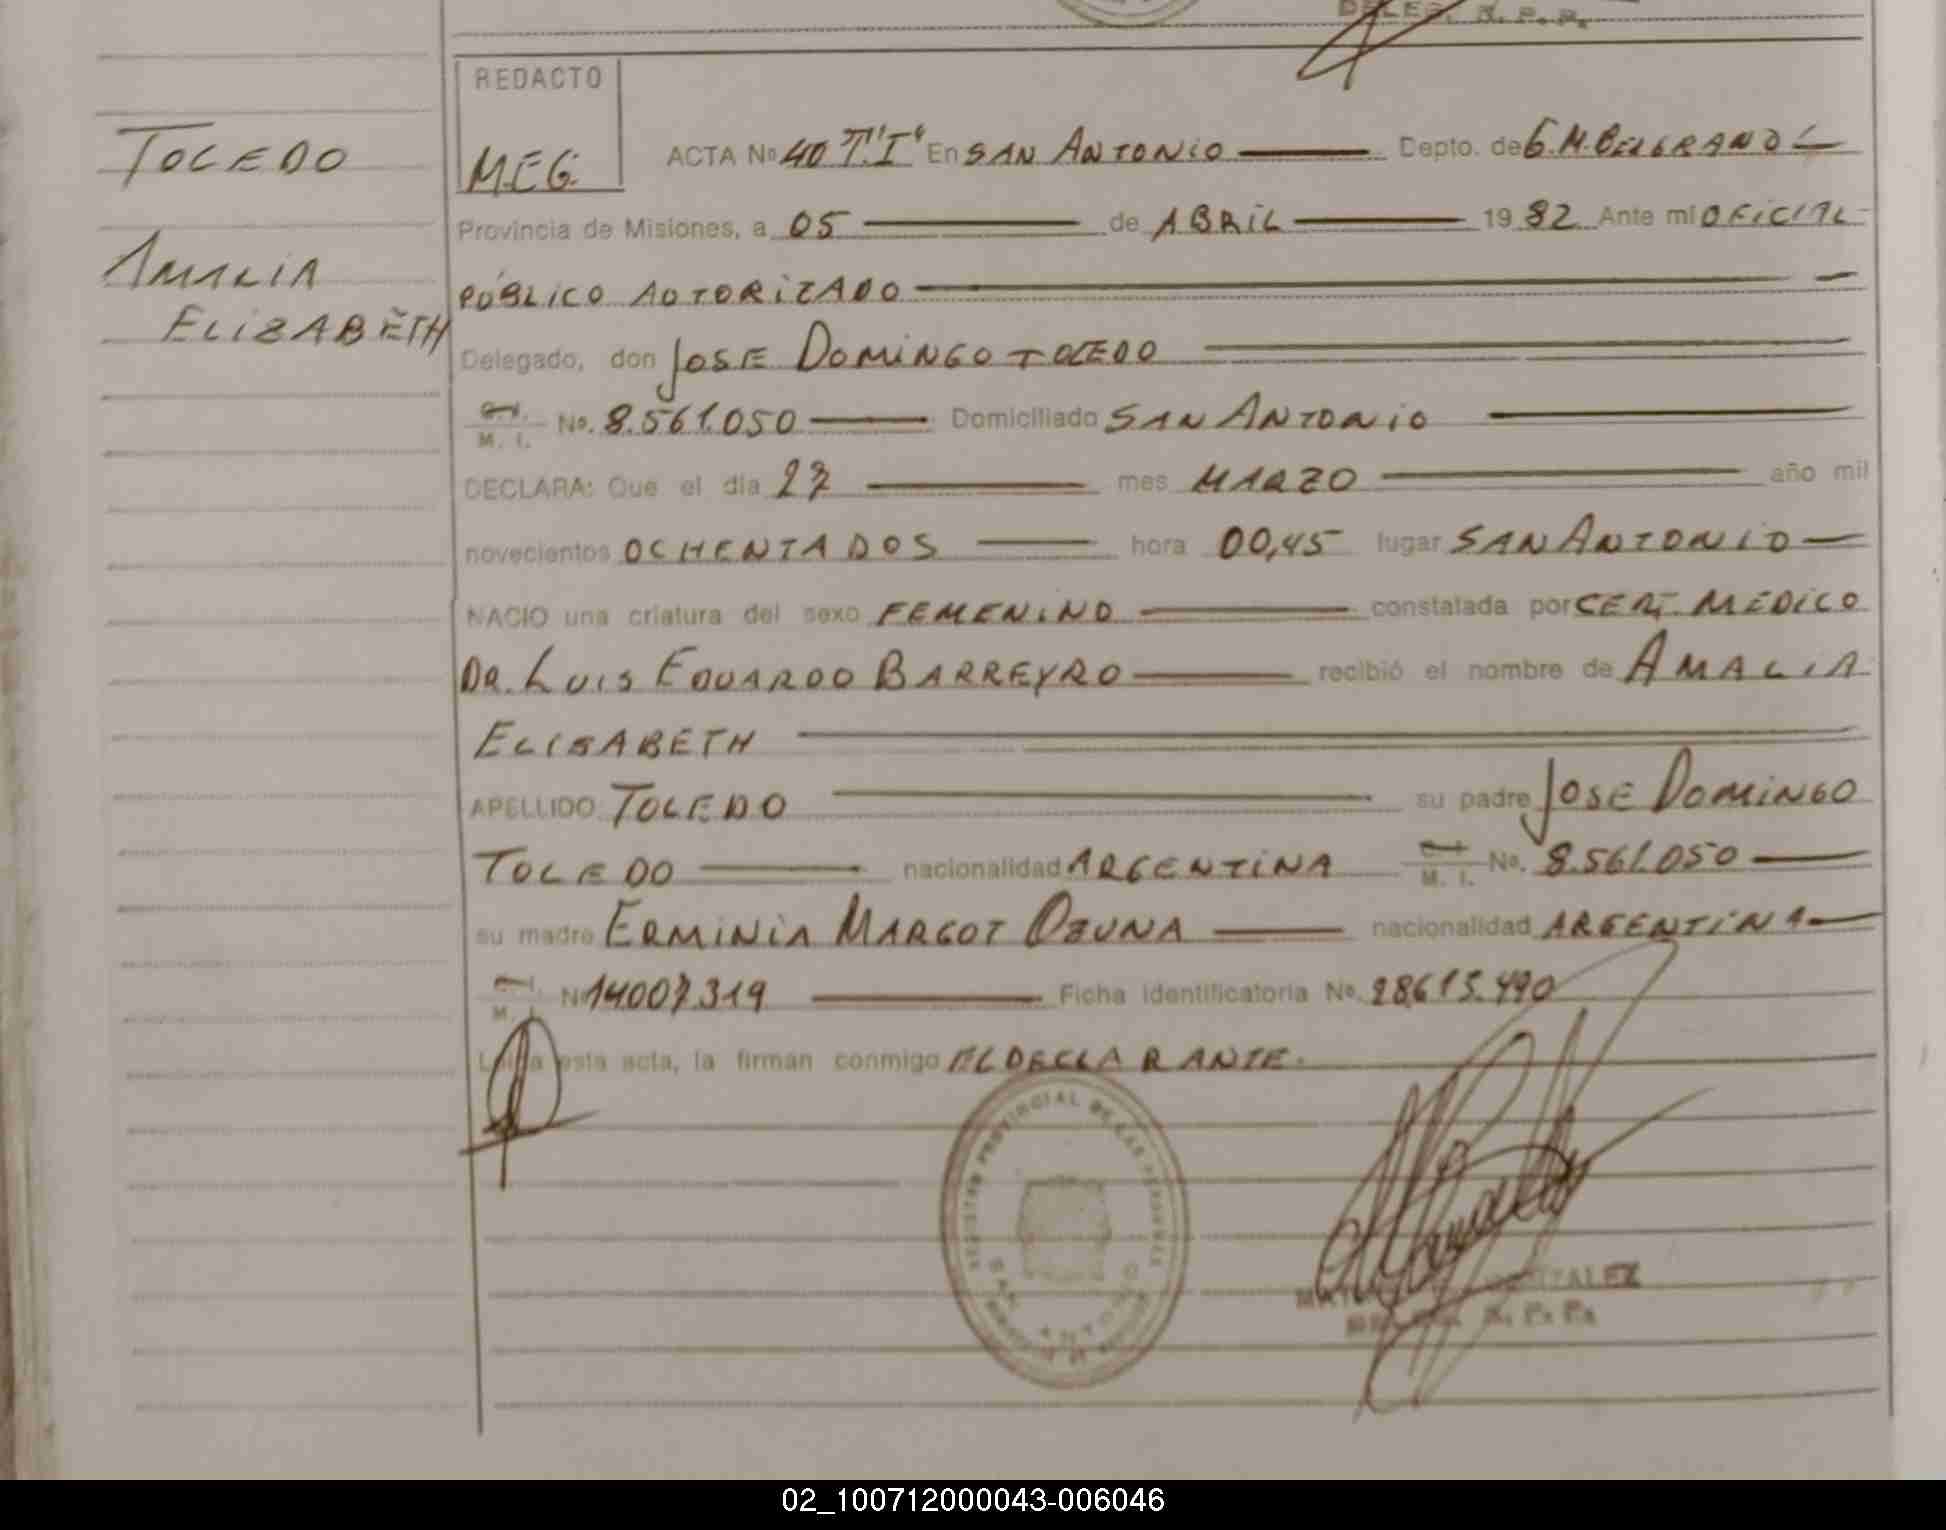 DELEG. R. P. P.
TOLEDO
AMALIA
ELIZABETH
REDACTO
M.E.G.
ACTA No 40 T."I" En SAN ANTONIO Depto. de G.M. BELGRANO
Provincia de Misiones, a 05 de ABRIL 1982 Ante mi OFICIAL
PÚBLICO AUTORIZADO
Delegado, don JOSE DOMINGO TOLEDO
C. I. / M. I. No. 8.561.050 Domiciliado SAN ANTONIO
DECLARA: Que el día 27 mes MARZO año mil
novecientos OCHENTA DOS hora 00,45 lugar SAN ANTONIO
NACIO una criatura del sexo FEMENINO constatada por CERT. MEDICO
DR. LUIS EDUARDO BARREYRO recibió el nombre de AMALIA
ELISABETH
APELLIDO TOLEDO su padre JOSE DOMINGO
TOLEDO nacionalidad ARGENTINA C. I. / M. I. No. 8.561.050
su madre ERMINIA MARGOT OZUNA nacionalidad ARGENTINA
C. I. / M. I. No 14.007.319 Ficha identificatoria No. 28.615.490
Leída esta acta, la firman conmigo EL DECLARANTE.
REGISTRO PROVINCIAL DE LAS PERSONAS
SAN ANTONIO
R. P. P.
02_100712000043-006046